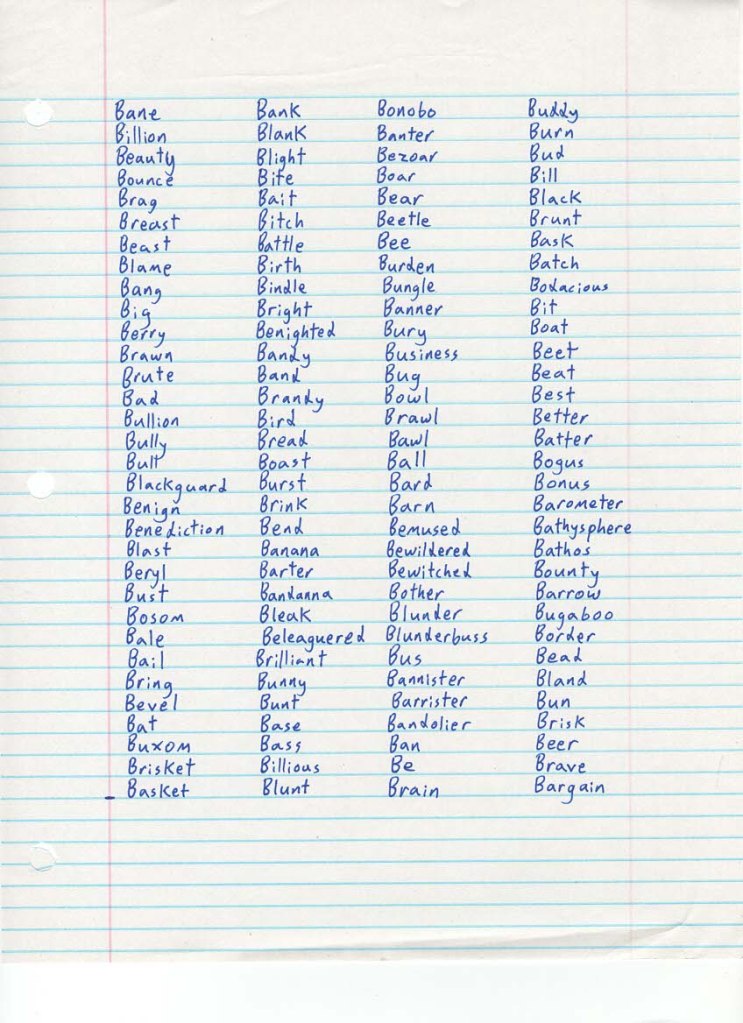 Bane Bank Bonobo Buddy
Billion Blank Banter Burn
Beauty Blight Bezoar Bud
Bounce Bite Boar Bill
Brag Bait Bear Black
Breast Bitch Beetle Brunt
Beast Battle Bee Bask
Blame Birth Burden Batch
Bang Bindle Bungle Bodacious
Big Bright Banner Bit
Berry Benighted Bury Boat
Brawn Bandy Business Beet
Brute Band Bug Beat
Bad Brandy Bowl Best
Bullion Bird Brawl Better
Bully Bread Bawl Batter
Boast Ball Bogus
Blackguard Burst Bard Bonus
Benign Brink Barn Barometer
Benediction Bend Bemused Bathysphere
Blast Banana Bewildered Bathos
Beryl Barter Bewitched Bounty
Bust Bandanna Bother Barrow
Bosom Bleak Blunder Bugaboo
Bale Beleaguered Blunderbuss Border
Bail Brilliant Bus Bead
Bring Bunny Bannister Bland
Bevel Bunt Barrister Bun
Bat Base Bandolier Brisk
Buxom Bass Ban Beer
Brisket Billious Be Brave
Basket Blunt Brain Bargain